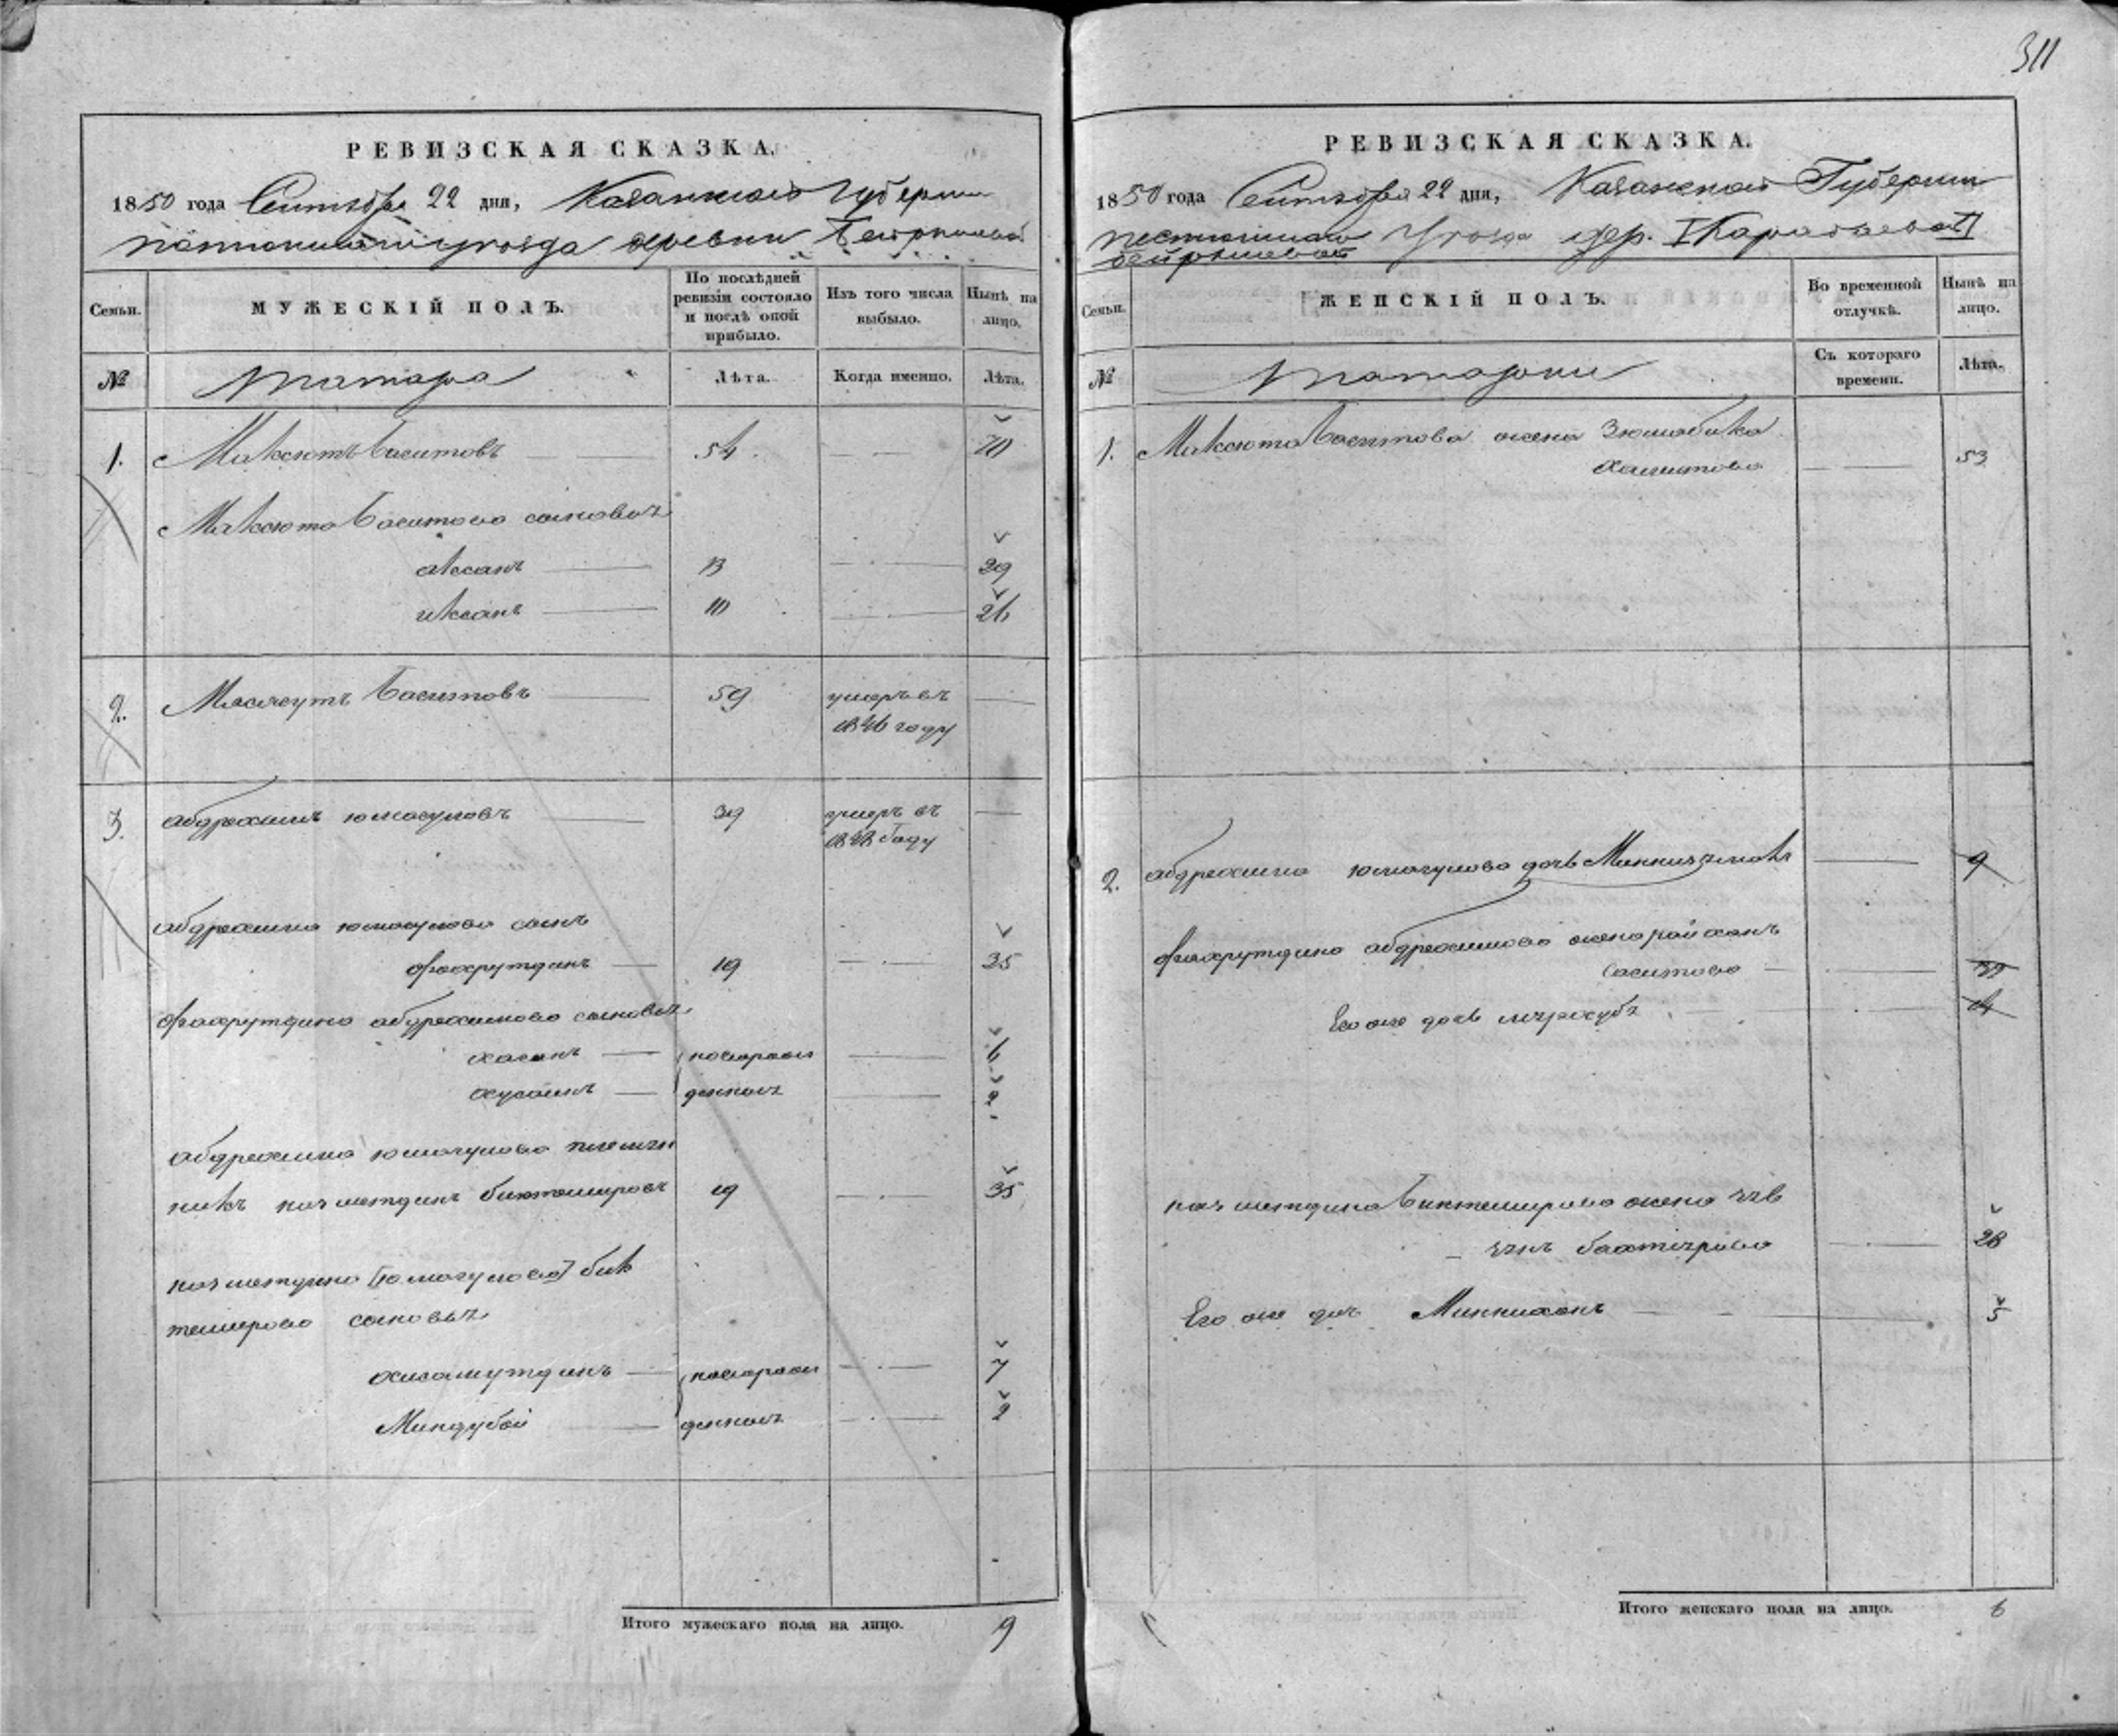 311
РЕВИЗСКАЯ СКАЗКА.
1850 года Сентября 22 дня, Казанской Губернии
уѣзда деревни
Семьи.
МУЖЕСКІЙ ПОЛЪ.
По послѣдней ревизіи состояло и послѣ оной прибыло.
Изъ того числа выбыло.
Нынѣ на лицо.
№
Татара
Лѣта.
Когда именно.
Лѣта.
1. Максютъ Баситовъ 54 70
Максюта Баситова сыновья
аксанъ 13 29
иксанъ 10 26
2. Баситовъ 59 умеръ въ
1846 году
3. абдрахимъ юмагуловъ 39 умеръ въ
1848 году
абдрахима юмагулова сынъ
фахрутдинъ 19 35
фахрутдина абдрахимова сыновья
хасанъ 6
хусаинъ 2
абдрахима юмагулова племян
никъ биктемировъ 19 35
[юмагулова] бик
темирова сыновья
хисамутдинъ 7
Миндубай 2
Итого мужескаго пола на лицо. 9
РЕВИЗСКАЯ СКАЗКА.
1850 года Сентября 22 дня, Казанской Губернии
уѣзда дер. [Каратаевой]
Семьи.
ЖЕНСКІЙ ПОЛЪ.
Во временной отлучкѣ.
Нынѣ на лицо.
№
Татарки
Съ котораго времени.
Лѣта.
1. Максюта Баситова жена Зюмабика
Халитова 53
2. абдрахима юмагулова дочь 9
фахрутдина абдрахимова жена райханъ
Саситова
Его же дочь 14
Биктемирова жена
28
Его же дочь Миннихань 5
Итого женскаго пола на лицо. 6